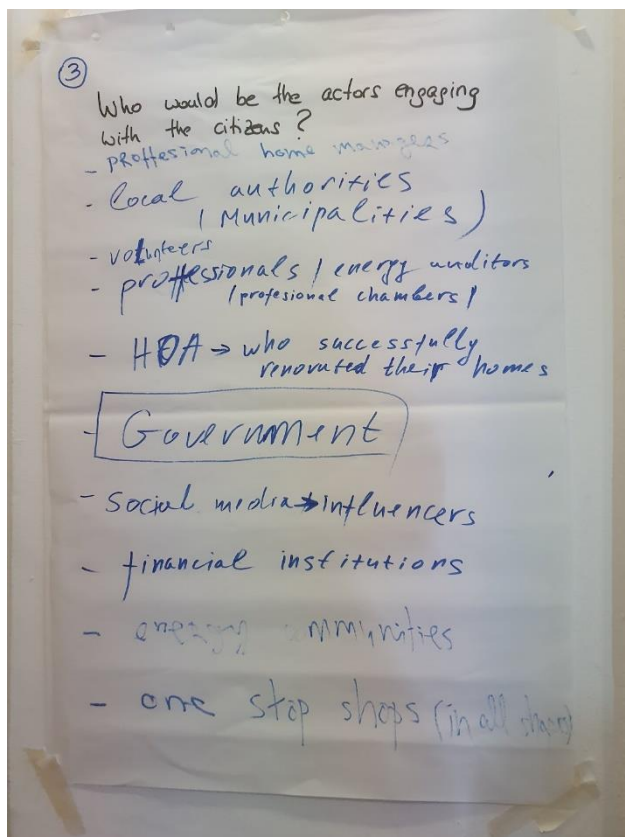 3
Who would be the actors engaging
with the citizens?
- proffesional home managers
- local authorities
(Municipalities)
- volunteers
- proffessionals / energy auditors
/profesional chambers/
- HOA → who successfully
renovated their homes
- Government
- social media → influencers
- financial institutions
-
- one stop shops (in all